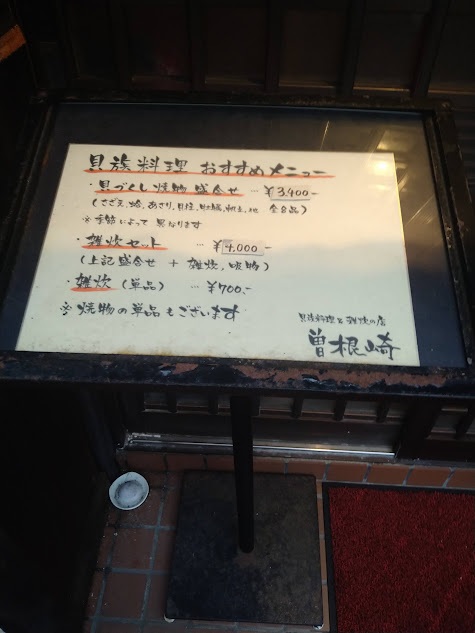 貝族料理 おすすめメニュー
・貝づくし焼物 盛合せ …¥3,400-
(さざえ、蛤、あさり、貝柱、牡蠣、帆立、他 全8品)
※季節によって 異なります
・雑炊セット …¥4,000-
(上記盛合せ + 雑炊、漬物)
・雑炊 (単品) …¥700-
※焼物の単品もございます
貝族料理と雑炊の店
曽根崎